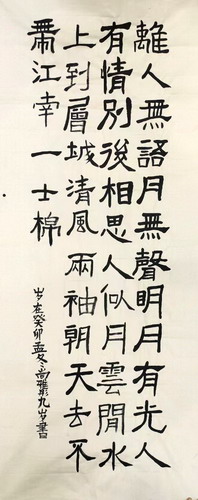 離人無語月無聲明月有光人
有情別後相思人似月雲間水
上到層城清風兩袖朝天去不
帶江南一寸棉
岁在癸卯孟冬尚雅彤九岁書